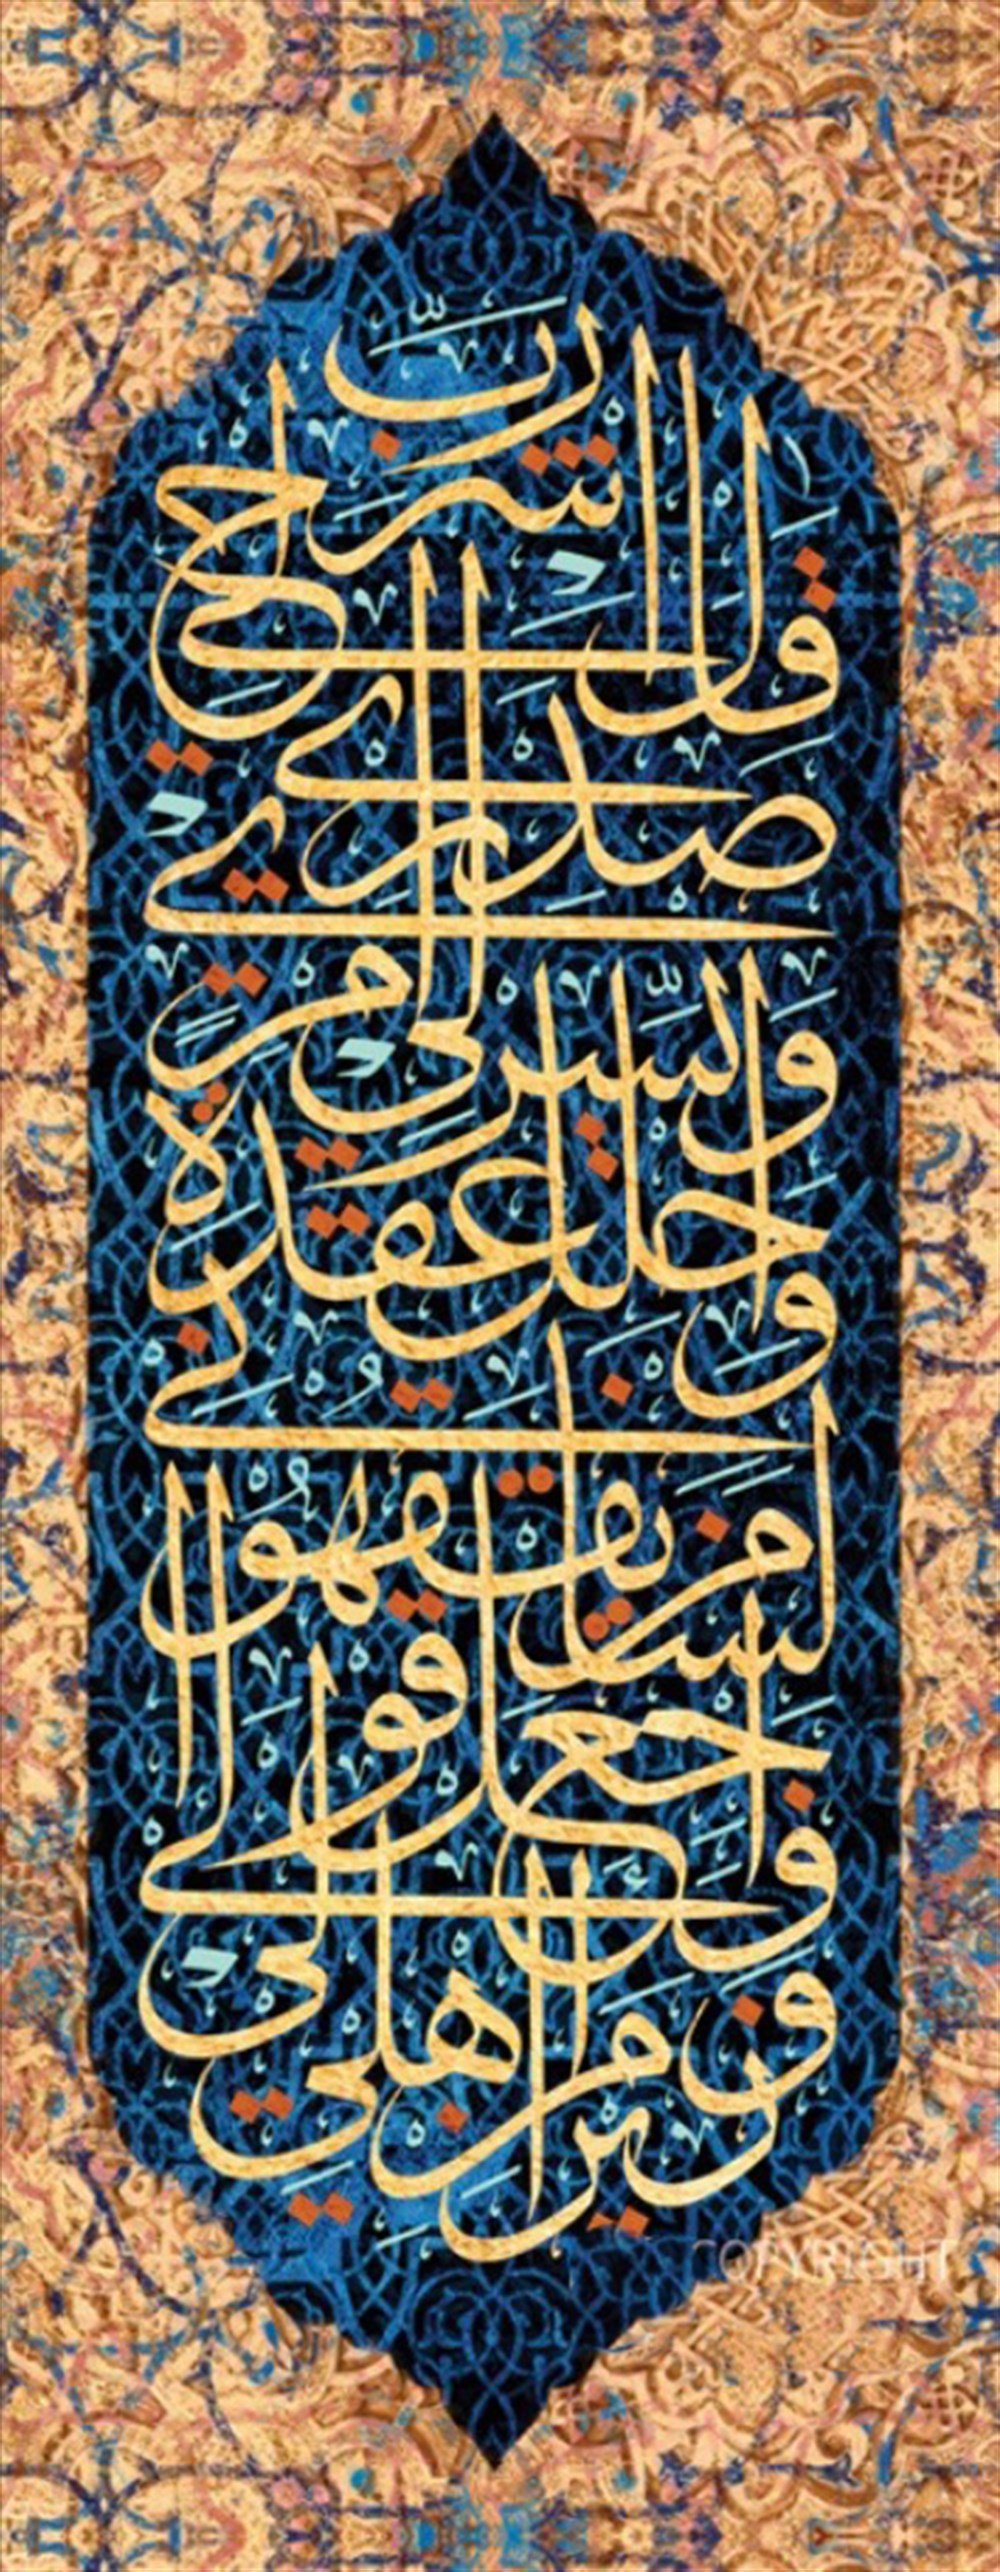 قَالَ رَبِّ اشْرَحْ لِي
صَدْرِي
وَيَسِّرْ لِي أَمْرِي
وَاحْلُلْ عُقْدَةً
مِنْ لِسَانِي
يَفْقَهُوا
قَوْلِي
وَاجْعَلْ لِي
وَزِيرًا مِنْ أَهْلِي
COPYRIGHT